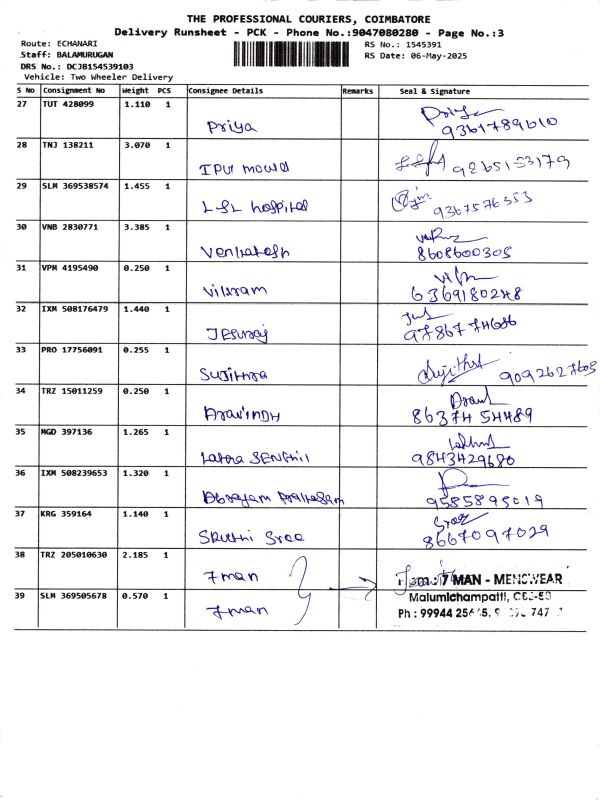 THE PROFESSIONAL COURIERS, COIMBATORE
Delivery Runsheet - PCK - Phone No.:9047080280 - Page No.:3
Route: ECHANARI
RS No.: 1545391
Staff: BALAMURUGAN
RS Date: 06-May-2025
DRS No.: DCJB154539103
Vehicle: Two Wheeler Delivery
S No Consignment No Weight PCS Consignee Details Remarks Seal & Signature
27 TUT 428099 1.110 1 Priya Priya
9361789610
28 TNJ 138211 3.070 1 9265153179
29 SLM 369538574 1.455 1 LSL hospital 9367576353
30 VNB 2830771 3.385 1 Venkatesh
8608600305
31 VPM 4195490 0.250 1 Vikram
6369180248
32 IXM 508176479 1.440 1 Jesuraj
33 PRO 17756091 0.255 1 Sujithra 9092627603
34 TRZ 15011259 0.250 1 Aravindh
8637454489
35 MGD 397136 1.265 1 Senthil
9843429680
36 IXM 508239653 1.320 1
9585895019
37 KRG 359164 1.140 1 Sruthi Sree
8667097029
38 TRZ 205010630 2.185 1 7man 7 MAN - MENSWEAR
39 SLM 369505678 0.570 1 7man Malumichampatti,
Ph : 99944